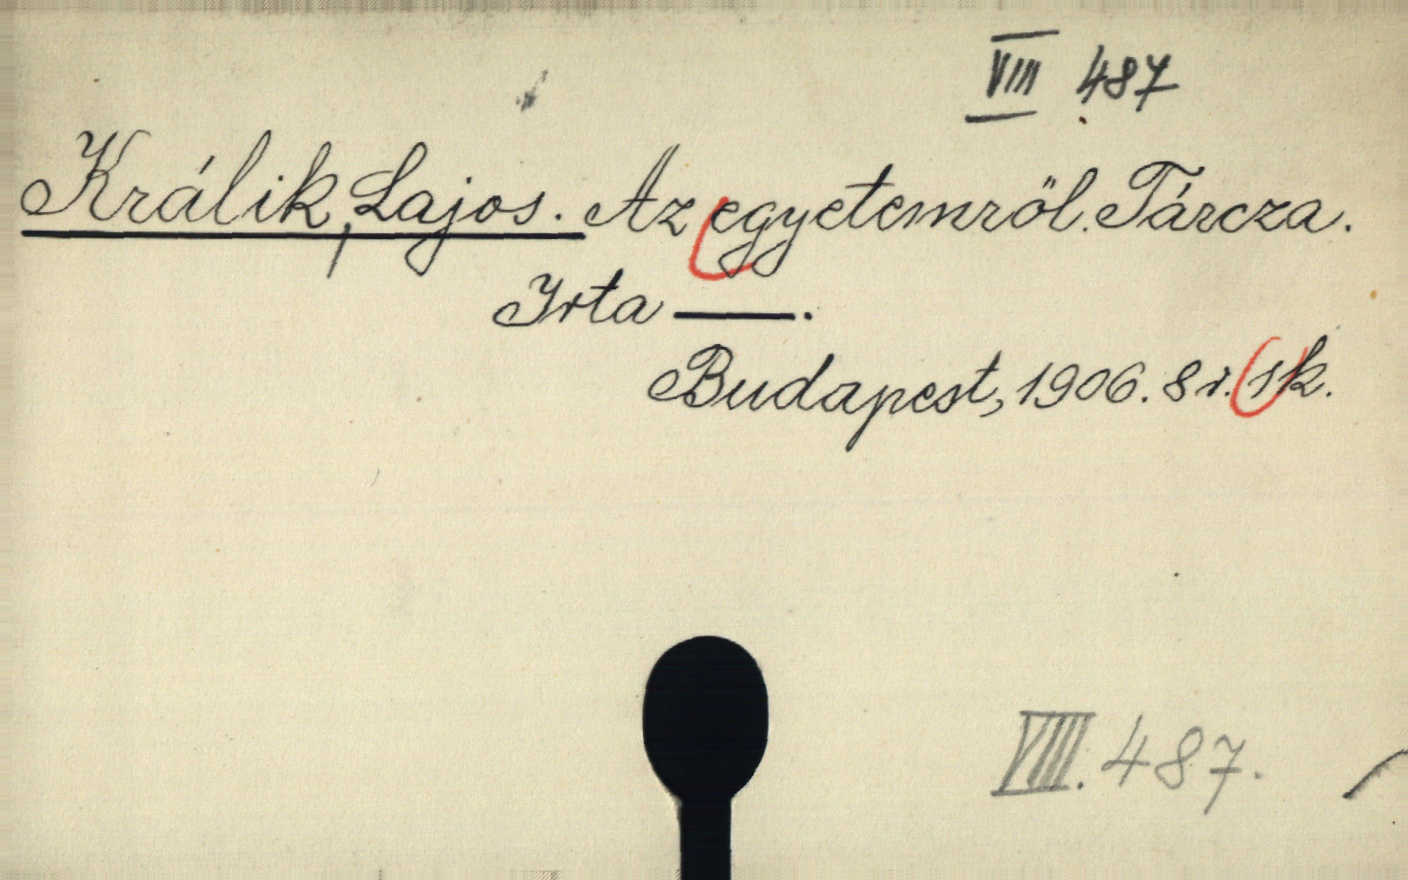 VIII 487
Králik, Lajos. Az egyetemről. Tárcza.
Irta ——.
Budapest, 1906. 8 r. 1 k.
VIII. 487.